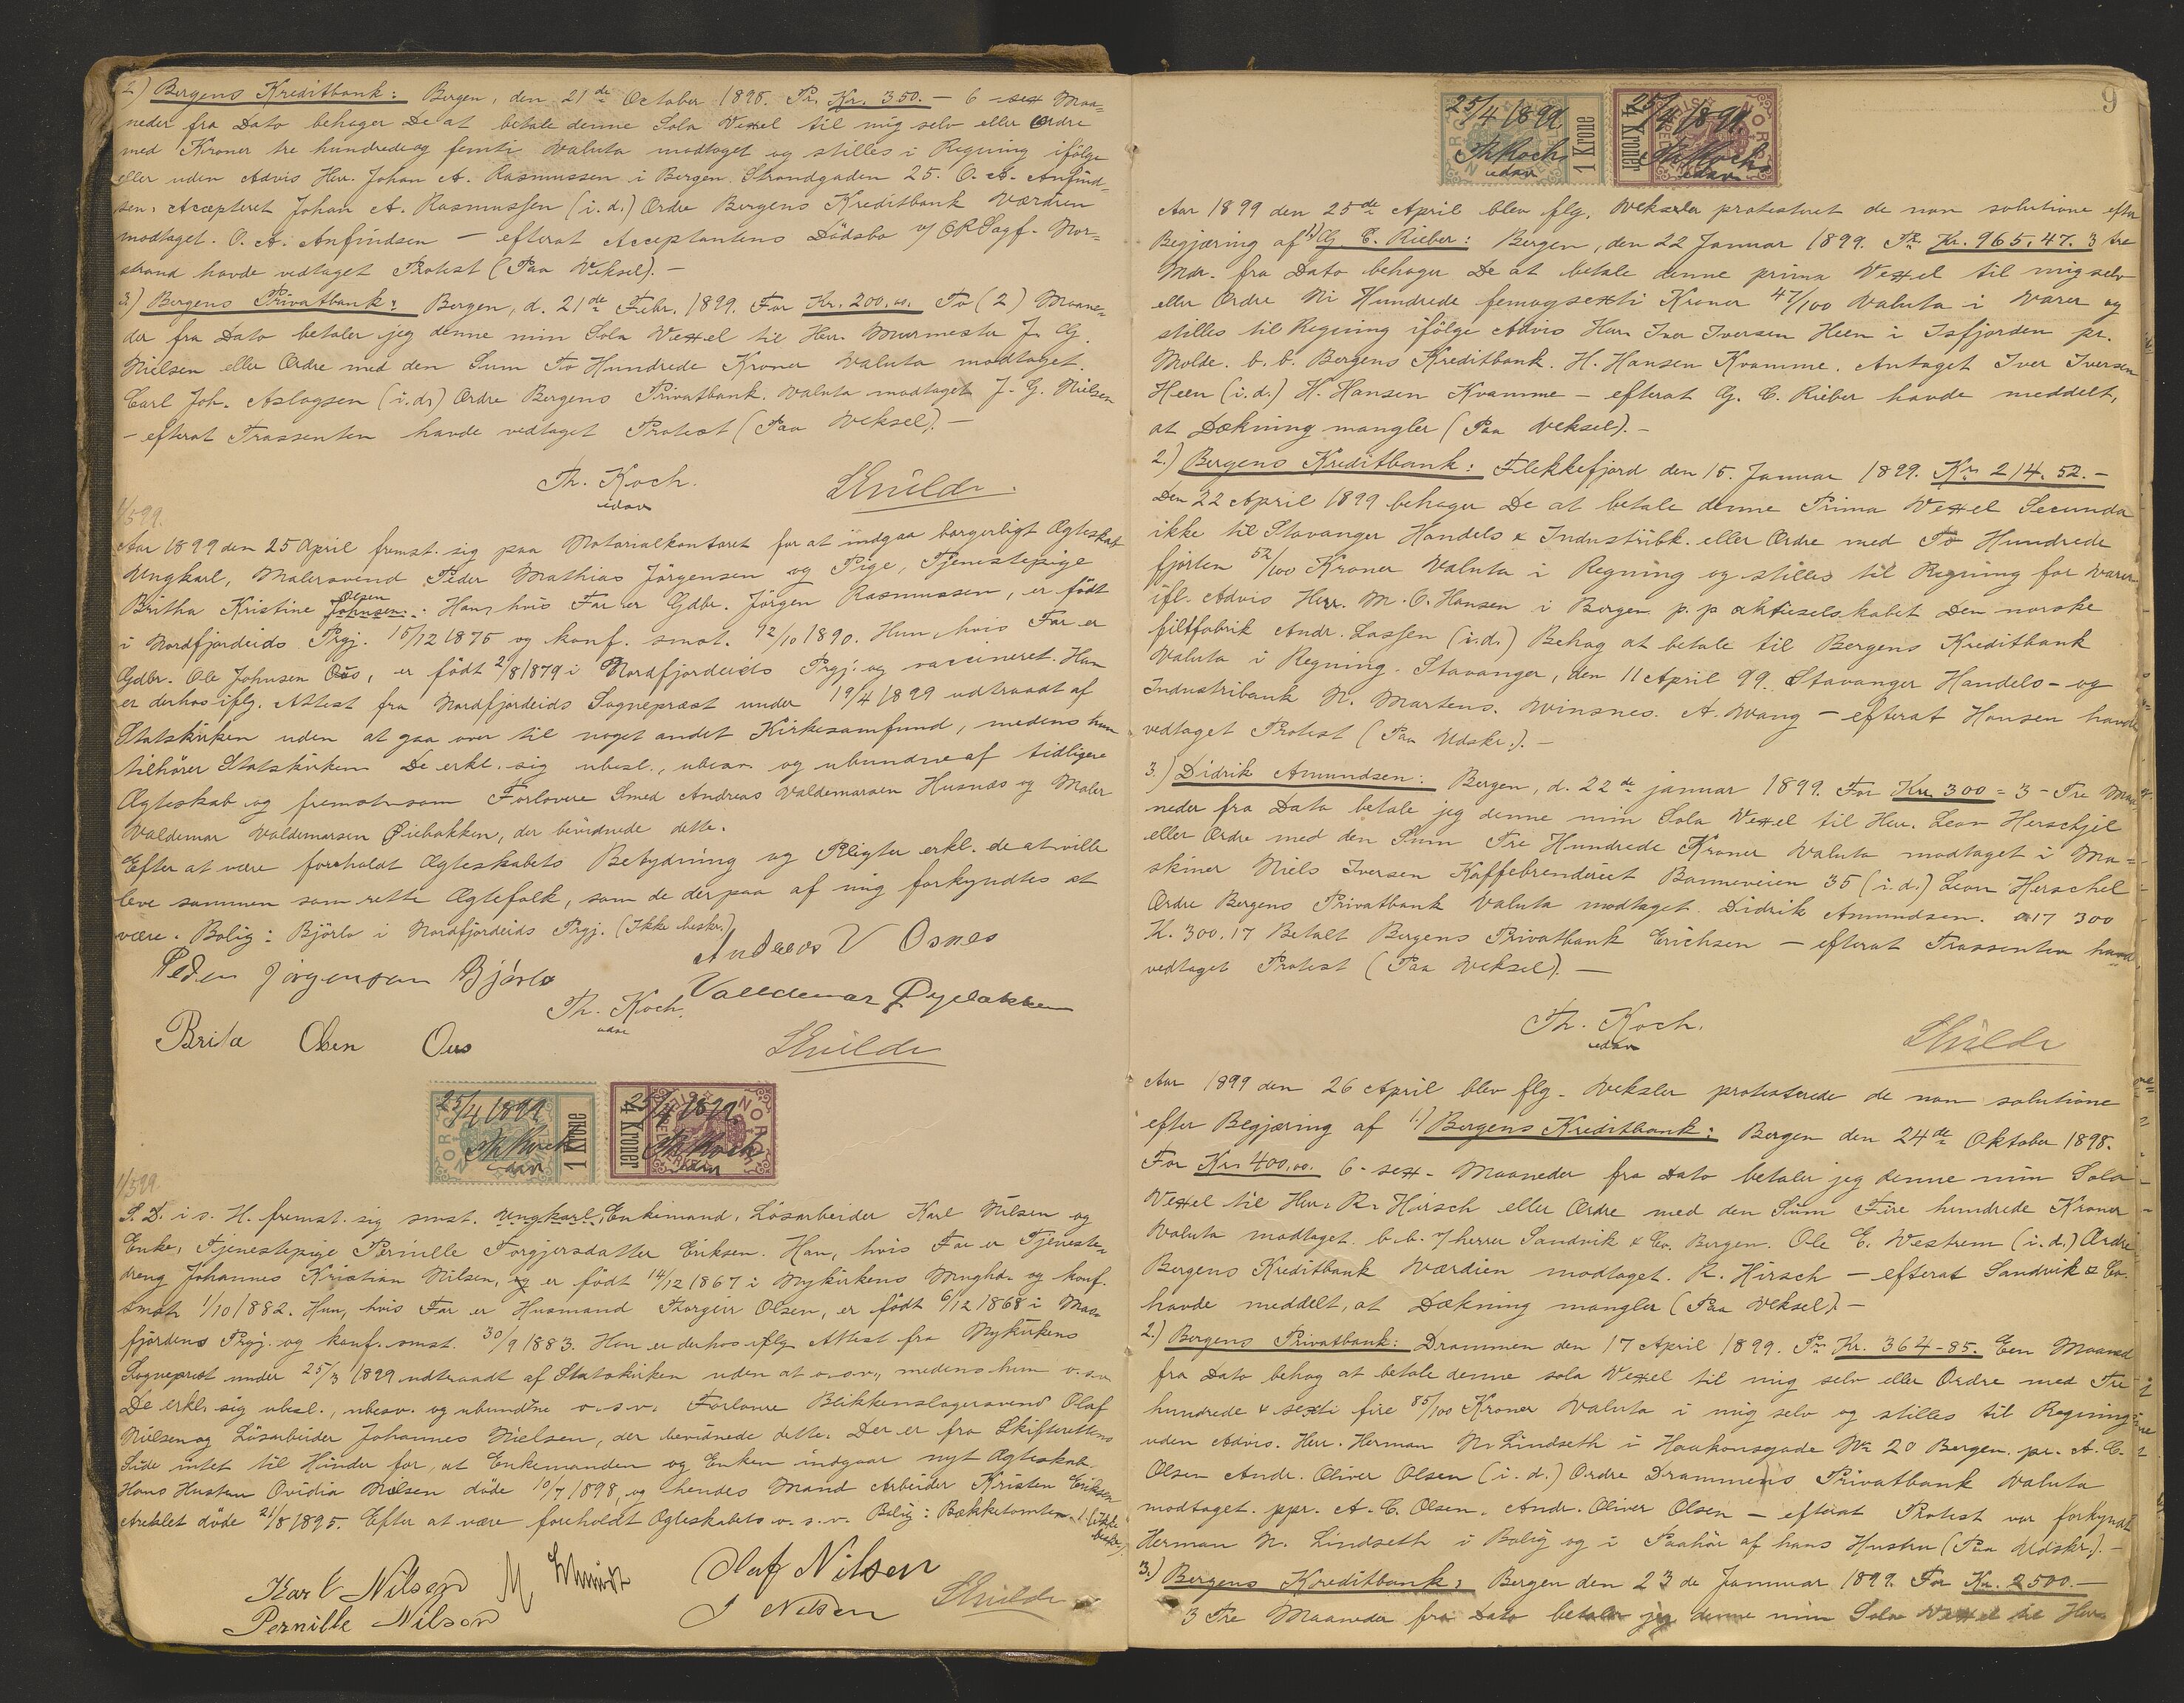 2.) Bergens Kreditbank: Bergen, den 21de October 1898. Pr. Kr. 350.— 6 sex Maa=
neder fra Dato behager De at betale denne Sola Vexel til mig selv eller Ordre
med Kroner tre hundrede og femti Valuta modtaget og stilles i Regning ifølge
eller uden Advis Herr. Johan A. Rasmussen i Bergen Strandgaden 25. O. A. Anfind=
sen. Accepteret Johan A. Rasmussen (i. d.) Ordre Bergens Kreditbank Værdien
modtaget. O. A. Anfindsen — efterat Acceptantens Dödsbo v/ ORSagf. Mor=
strand havde vedtaget Protest (Paa Veksel). —
3) Bergens Privatbank: Bergen, d. 21de Febr. 1899. For Kr. 200,00. To (2) Maane=
der fra Dato betaler jeg denne min Sola Vexel til Herr Murmester J. G.
Nielsen eller Ordre med den Sum To Hundrede Kroner Valuta modtaget.
Carl Joh. Aslagsen (i. d.) Ordre Bergens Privatbank. Valuta modtaget J. G. Nielsen
— efterat Trassenten havde vedtaget Protest (Paa Veksel). —
Th. Koch.
edsv
1/5 99.
Aar 1899 den 25 April fremst. sig paa Notarialkontoret for at indgaa borgerligt Ægteskab
Ungkarl, Malersvend Peder Mathias Jörgensen og Pige, Tjenestepige
Britha Kristine Johnsen. Olsen Han, hvis Far er Gdbr. Jörgen Rasmussen, er født
i Nordfjordeids Prgj. 15/12 1875 og konf. smst. 12/10 1890. Hun, hvis Far er
Gdbr. Ole Johnsen Øus, er født 2/8 1879 i Nordfjordeids Prgj. og vaccineret. Han
er derhos iflg. Attest fra Nordfjordeids Sognepræst under 19/4 1899 udtraadt af
Statskirken uden at gaa over til noget andet Kirkesamfund, medens hun
tilhörer Statskirken. De erkl. sig ubesl., ubesv. og ubundne af tidligere
Ægteskab og fremst. som Forlovere Smed Andreas Valdemarsen Husnæs og Maler
Valdemar Valdemarsen Øiebakken, der bevidnede dette.
Efter at være foreholdt Ægteskabets Betydning og Pligter erkl. de at ville
leve sammen som rette Ægtefolk, som de derpaa af mig forkyndtes at
være. Bolig: Björlo i Nordfjordeids Prgj. (Ikke beskr.)
Peder Jörgensen Bjórlo Andreas V Osnes
Th. Koch. edsv Valdemar Øyebakken
Brita Olsen Ous
25/4 1899 Th Koch edsv 1 Krone 25/4 1899. Th Koch edsv 4 Kroner
1/5 99.
S. D. i s. H. fremst. sig smst. Ungkarl, Enkemand, Lösarbeider Karl Nilsen og
Enke, Tjenestepige Pernille Torgjersdatter Eriksen. Han, hvis Far er Tjeneste=
dreng Johannes Kristian Nilsen, og er født 14/12 1867 i Nykirkens Mnghd. og konf.
smst. 1/10 1882. Hun, hvis Far er Husmand Torgeir Olsen, er født 6/12 1868 i Mas
fjordens Prgj. og konf. smst. 30/9 1883. Han er derhos iflg. Attest fra Nykirkens
Sognepræst under 25/3 1899 udtraadt af Statskirken uden at o. s. v., medens hun o. s. v.
De erkl. sig ubesl., ubesv. og ubundne o. s. v. Forlovere Blikkenslagersvend Olaf
Nielsen og Lösarbeider Johannes Nielsen, der bevidnede dette. Der er fra Skifterettens
Side intet til Hinder for, at Enkemanden og Enken indgaar nyt Ægteskab.
Hans Hustru Ovidia Nilsen døde 10/7 1898, og hendes Mand Arbeider Kristen Eriksen
døde 21/8 1895. Efter at være foreholdt Ægteskabets o. s. v. Bolig: Bakketomten. (Ikke
beskr.)
Karl Nilsen Olaf Nilsen
Pernille Nilsen J Nilsen
9
25/4 1899 Th Koch edsv 1 Krone 25/4 1899. Th Koch edsv 4 Kroner
Aar 1899 den 25de April blev flg. Veksler protesteret de non solutione efter
Begjæring af 1) G. C. Rieber: Bergen, den 22 Januar 1899. Pr. Kr. 965,47. 3 tre
Mdr. fra Dato behager De at betale denne prima Vexel til mig selv
eller Ordre Ni Hundrede femogsexti Kroner 47/100 Valuta i Varer og
stilles til Regning ifölge Advis Herr Iver Iversen Heen i Isfjorden pr.
Molde. b. b. Bergens Kreditbank. H. Hansen Kvamme. Antaget Iver Iversen
Heen (i. d.) H. Hansen Kvamme — efterat G. C. Rieber havde meddelt,
at Dækning mangler (Paa Veksel). —
2.) Bergens Kreditbank: Flekkefjord den 15. Januar 1899. Kr. 214. 52. —
Den 22 April 1899 behager De at betale denne Prima Vexel Secunda
ikke til Stavanger Handels & Industribk. eller Ordre med To Hundrede
fjorten 52/100 Kroner Valuta i Regning og stilles til Regning for Varer
ifl. Advis Herr. M. C. Hansen i Bergen p. p aktieselskabet Den norske
filtfabrik Andr. Lassen (i. d.) Behag at betale til Bergens Kreditbank
Valuta i Regning. Stavanger, den 11 April 99. Stavanger Handels- og
Industribank N. Martens. Winsnes. A. Wang — efterat Hansen havde
vedtaget Protest (Paa Udskr.). —
3.) Didrik Amundsen: Bergen, d. 22de januar 1899. For Kr. 300 = 3 - Tre Maa
neder fra Dato betale jeg denne min Sola Vexel til Herr. Leon Herschjel
eller Ordre med den Sum Tre Hundrede Kroner Valuta modtaget i Ma=
skiner Niels Iversen Kaffebrenderiet Banneveien 35 (i. d.) Leon Herschel
Ordre Bergens Privatbank Valuta modtaget. Didrik Amundsen. 17 300
K. 300.17 Betalt Bergens Privatbank Erichsen — efterat Trassenten havde
vedtaget Protest (Paa Veksel). —
Th. Koch.
edsv
Aar 1899 den 26 April blev flg. Veksler protesterede de non solutione
efter Begjæring af 1.) Bergens Kreditbank: Bergen den 24de Oktober 1898.
For Kr. 400,00. 6 - sex - Maaneder fra Dato betaler jeg denne min Sola
Vexel til Herr. R. Hirsch eller Ordre med den Sum Fire hundrede Kroner
Valuta modtaget. b. b. v/ herrer Sandvik & Co. Bergen. Ole E. Westrem (i. d.) Ordre
Bergens Kreditbank Værdien modtaget. R. Hirsch — efterat Sandvik & Co.
havde meddelt, at Dækning mangler (Paa Veksel). —
2.) Bergens Privatbank: Drammen den 17 April 1899. Pr. Kr. 364-85. Een Maaned
fra Dato behag at betale denne sola Vexel til mig selv eller Ordre med Tre
hundrede & sexti fire 85/100 Kroner Valuta i mig selv og stilles til Regning
uden Advis. Herr. Herman N. Lindseth i Haakonsgade No 20 Bergen. pr. A. C.
Olsen Andr. Oliver Olsen (i. d.) Ordre Drammens Privatbank Valuta
modtaget. ppr. A. C. Olsen. Andr. Oliver Olsen — efterat Protest var forkyndt
Herman N. Lindseth i Bolig og i Paahör af hans Hustru (Paa Udskr.). —
3.) Bergens Kreditbank: Bergen den 23 de Januar 1899. For Kr. 2500. —
3 Tre Maaneder fra Dato betaler jeg denne min Sola Vexel til Herr